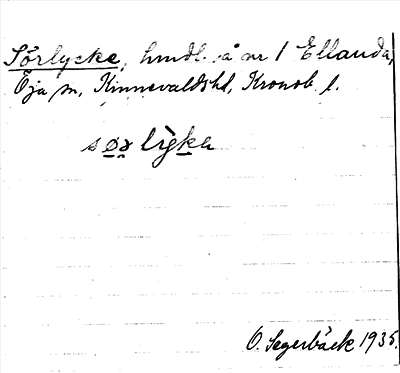 Sörlycke, hmdl. å nr 1 Ellanda,
Öja sn, Kinnevaldshd, Kronob. l.
søʀ lỳka
O. Segerbäck 1935.